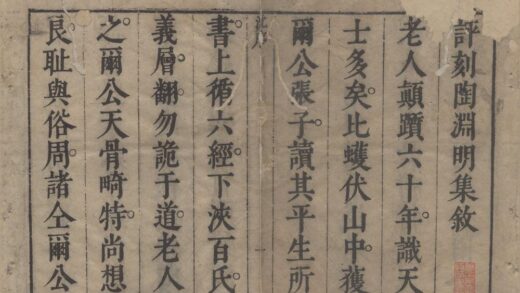 評刻陶淵明集敘
老人顛躓六十年識天
士多矣比蠖伏山中獲
爾公張子讀其平生所
書上循六經下浹百氏
義層翻勿詭于道老人
之爾公天骨畸特尚想
良耻與俗周諸仝爾公